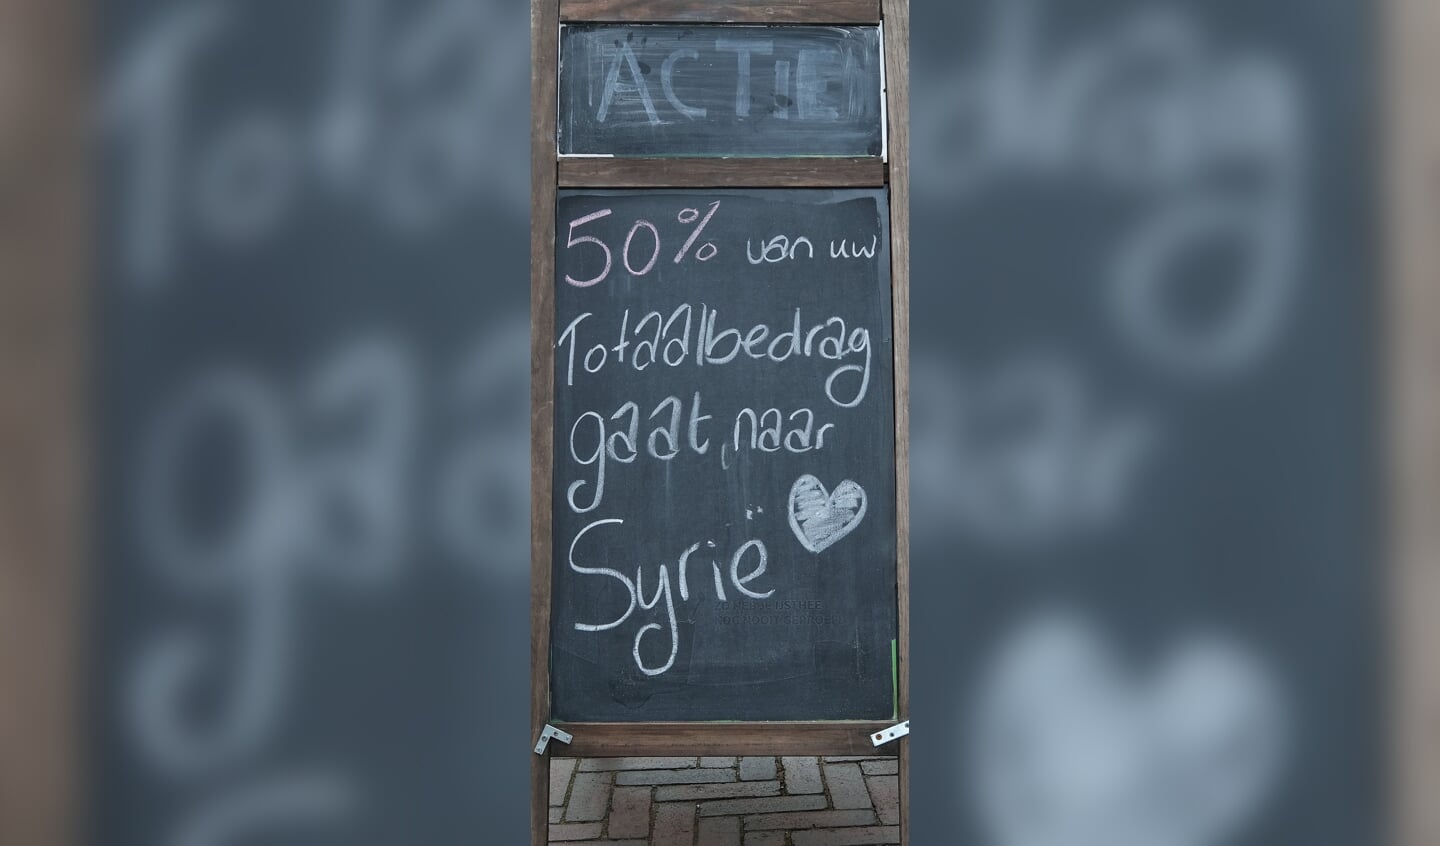 ACTIE
50% van uw
Totaalbedrag
gaat naar
Syrië
ZO HEB JE IJSTHEE
NOG NOOIT GEPROEFD